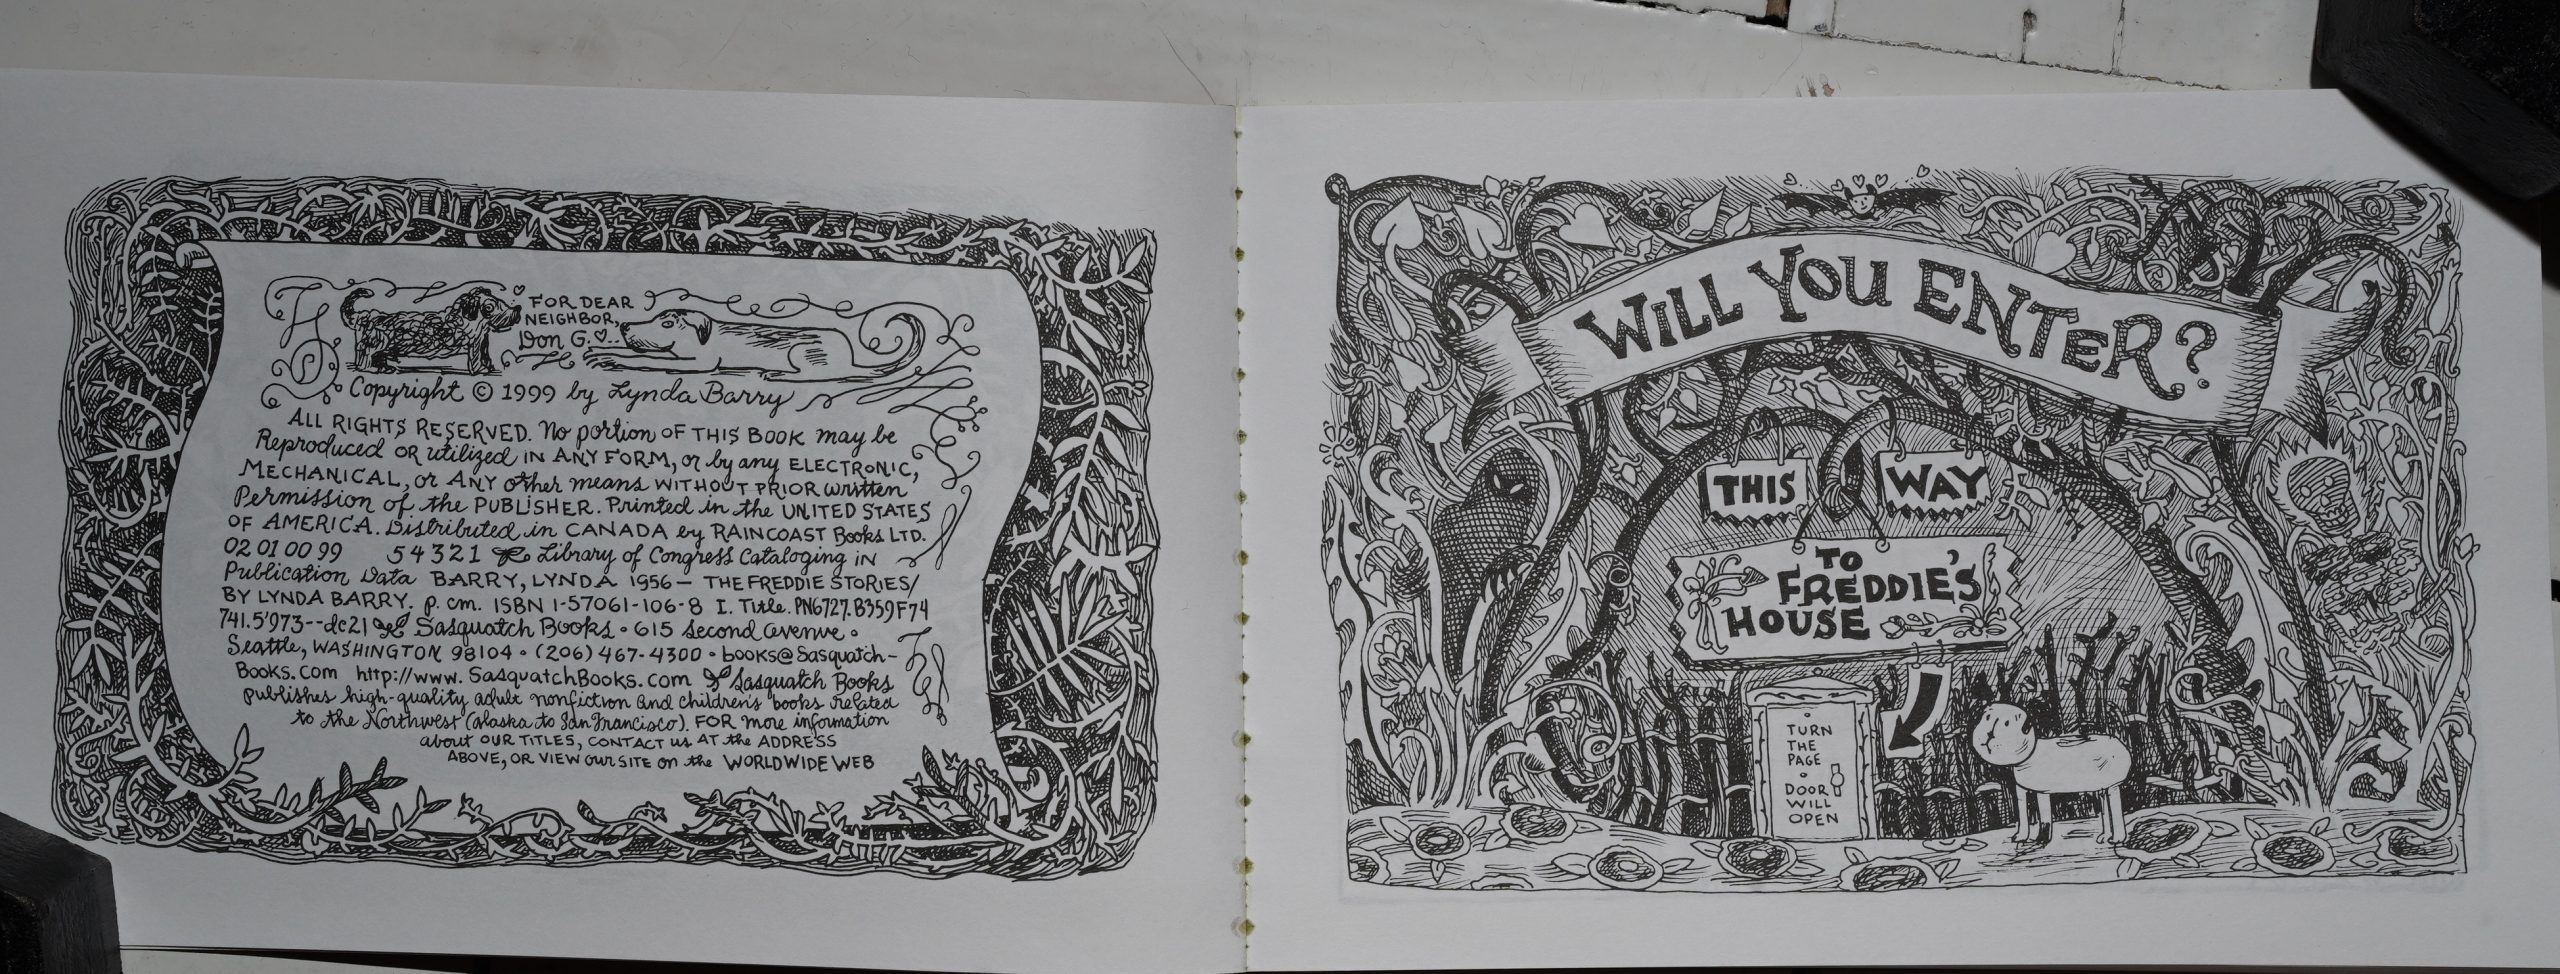 FOR DEAR
NEIGHBOR,
Don G.
Copyright © 1999 by Lynda Barry
ALL RIGHTS RESERVED. No portion OF THIS BOOK may be
Reproduced OR utilized IN ANY FORM, or by any ELECTRONIC,
MECHANICAL, or ANY other means WITHOUT PRIOR written
Permission of the PUBLISHER. Printed in the UNITED STATES
OF AMERICA. Distributed in CANADA by RAINCOAST Books LTD.
02 01 00 99 5 4 3 2 1 Library of Congress Cataloging in
Publication Data BARRY, LYNDA 1956— THE FREDDIE STORIES/
BY LYNDA BARRY. p. cm. ISBN 1-57061-106-8 I. Title. PN6727.B359F74
741.5'973--dc21 Sasquatch Books • 615 Second avenue •
Seattle, WASHINGTON 98104 • (206) 467-4300 • books@Sasquatch-
Books.com http://www.SasquatchBooks.com Sasquatch Books
publishes high-quality adult nonfiction and children's books related
to the Northwest (alaska to San Francisco). FOR more information
about OUR TITLES, CONTACT us AT the ADDRESS
ABOVE, OR VIEW our SITE on the WORLD WIDE WEB
WILL YOU ENTER?
THIS WAY
TO
FREDDIE'S
HOUSE
TURN
THE
PAGE
•
DOOR
WILL
OPEN